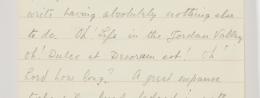 write having absolutely nothing else
to do. Oh! Life in the Jordan Valley
oh! Dulce et Decorum est! Oh!
Lord how long? A great expanse